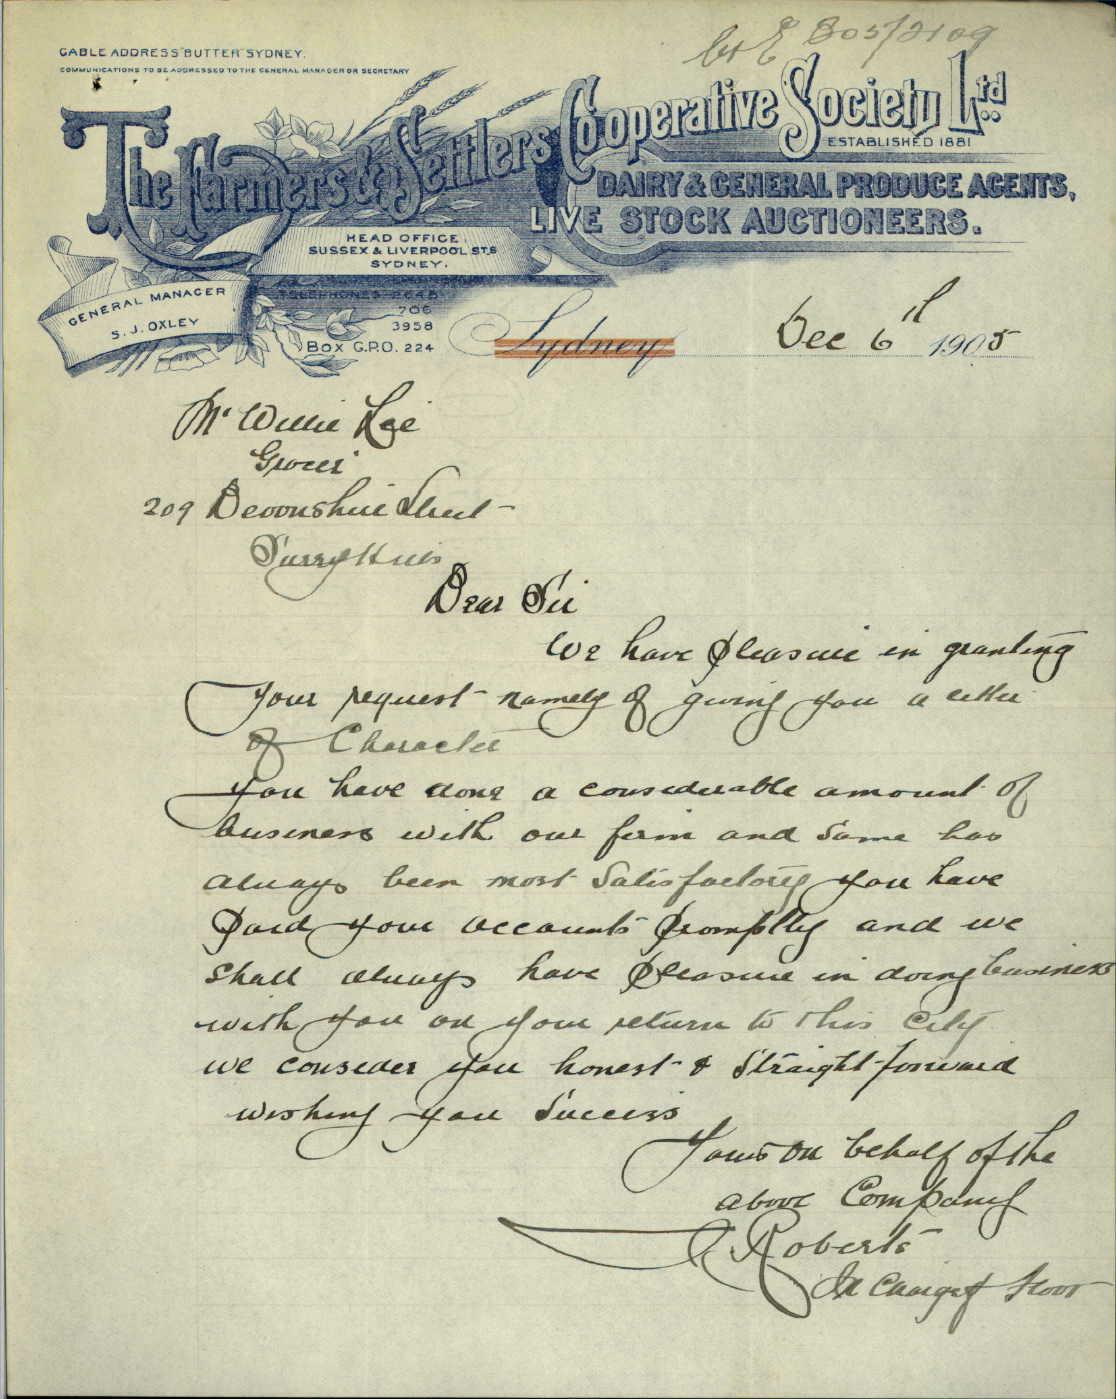 E 305/2109
CABLE ADDRESS "BUTTER" SYDNEY.
COMMUNICATIONS TO BE ADDRESSED TO THE GENERAL MANAGER OR SECRETARY
The Farmers & Settlers Cooperative Society Ltd
ESTABLISHED 1881
DAIRY & GENERAL PRODUCE AGENTS,
LIVE STOCK AUCTIONEERS.
HEAD OFFICE.
SUSSEX & LIVERPOOL STS
SYDNEY.
GENERAL MANAGER
S. J. OXLEY
TELEPHONES 2648
706
3958
BOX G.P.O. 224
Sydney Dec 6th 1905
Mr Willie Lee
Grocer
209 Devonshire Street
Surry Hills
Dear Sir
We have pleasure in granting
your request namely of giving you a letter
of Character
You have done a considerable amount of
business with our firm and same has
always been most satisfactory you have
paid your accounts promptly and we
shall always have pleasure in doing business
with you on your return to this City
we consider you honest & straight-forward
wishing you success
Yours on behalf of the
above Company
Roberts
In Charge of Floor